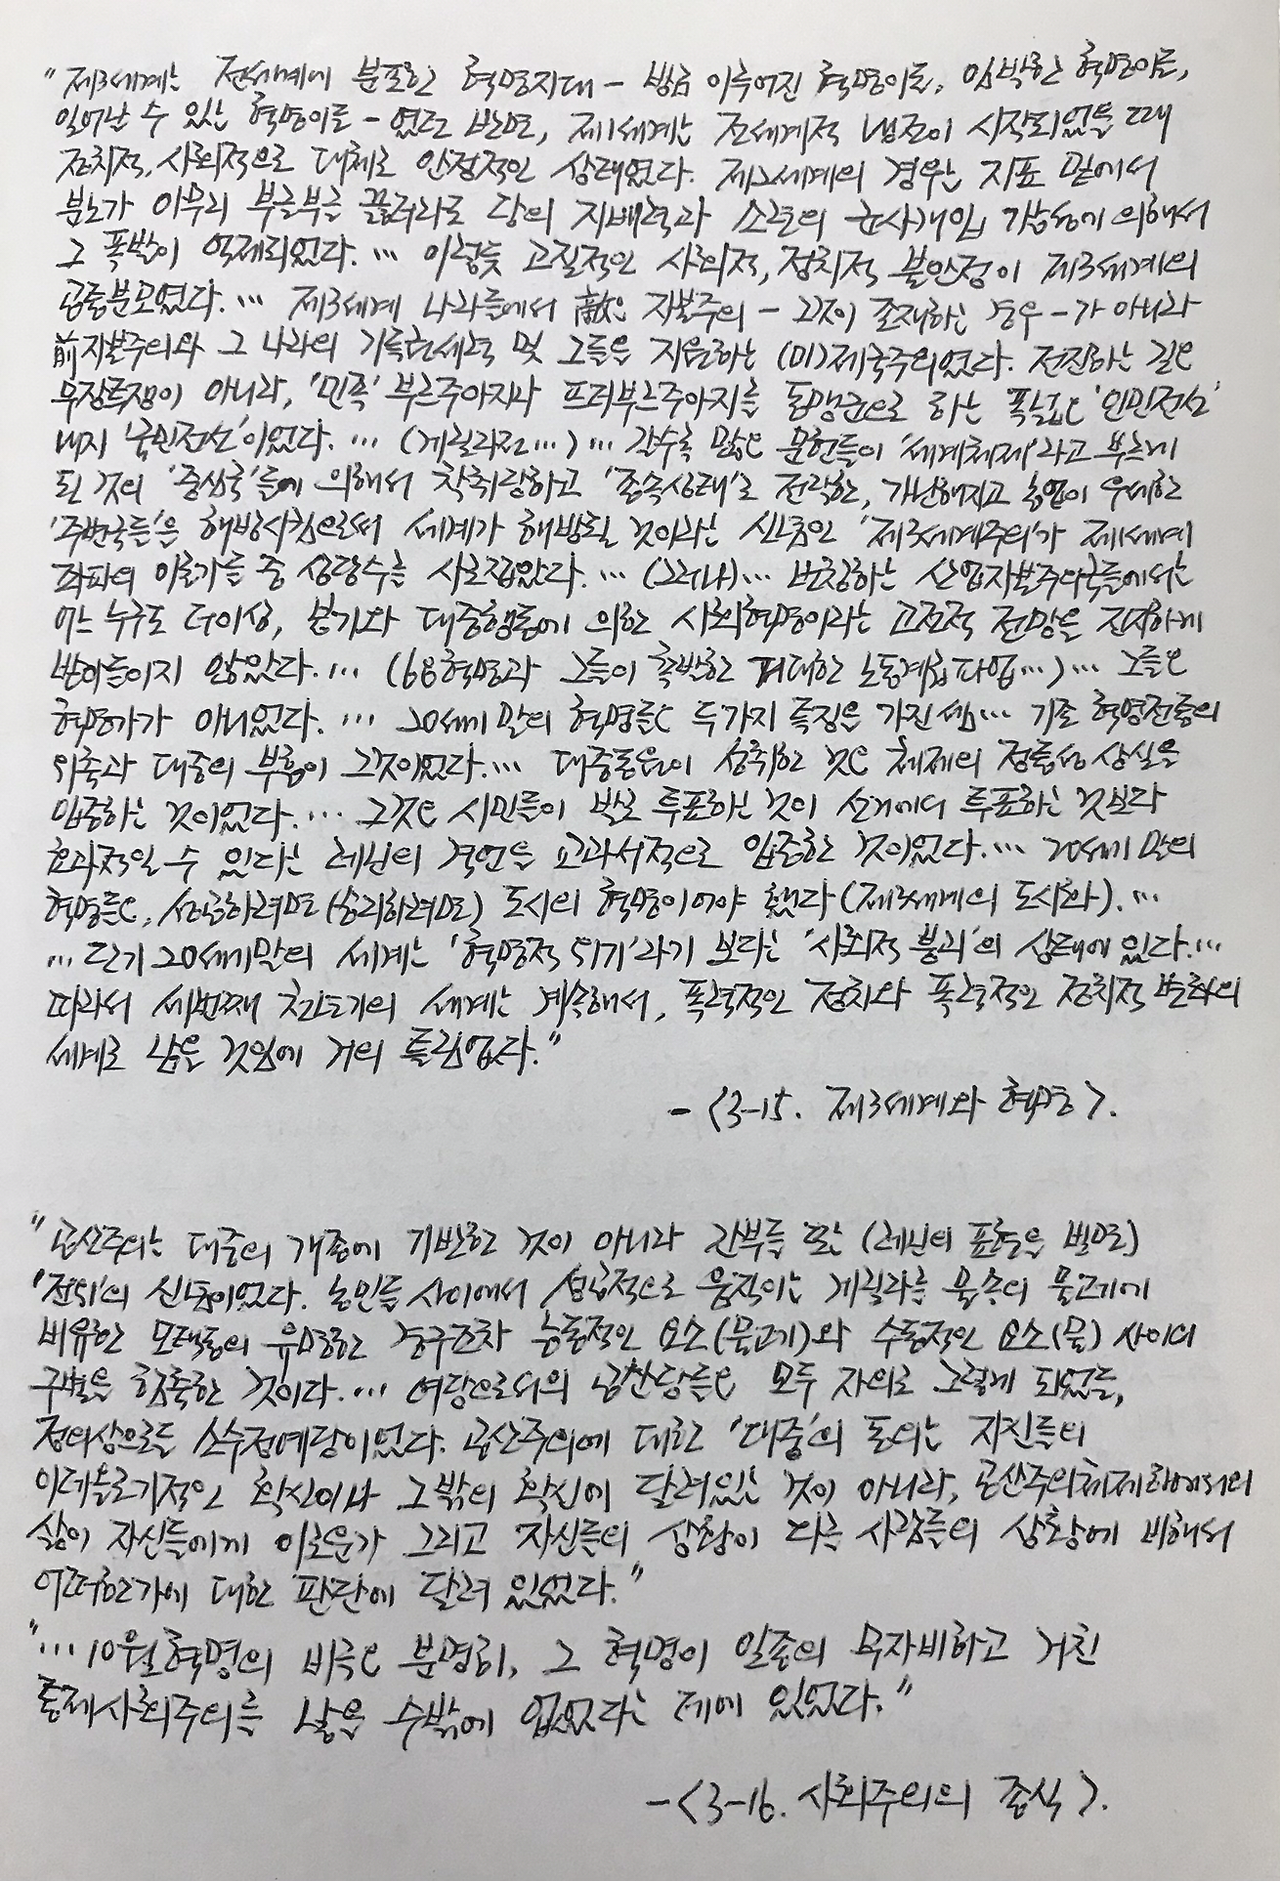 "제3세계는 전세계에 분포한 혁명지대 - 방금 이루어진 혁명이든, 임박한 혁명이든,
일어날 수 있는 혁명이든 - 였던 반면, 제1세계는 전세계적 냉전이 시작되었을 때
정치적, 사회적으로 대체로 안정적인 상태였다. 제2세계의 경우는 지표 밑에서
분노가 아무리 부글부글 끓더라도 당의 지배력과 소련의 군사개입 가능성에 의해서
그 폭발이 억제되었다. … 이렇듯 고질적인 사회적, 정치적 불안정이 제3세계의
공통분모였다. … 제3세계 나라들에서 敵은 자본주의 - 그것이 존재하는 경우 - 가 아니라
前자본주의와 그 나라의 기득권세력 및 그들을 지원하는 (미)제국주의였다. 전진하는 길은
무장투쟁이 아니라, '민족' 부르주아지나 프티부르주아지를 동맹군으로 하는 폭넓은 '인민전선'
내지 '국민전선'이었다. … (게릴라전…) … 갈수록 많은 문헌들이 '세계체제'라고 부르게
된 것의 '중심국'들에 의해서 착취당하고 '종속상태'로 전락한, 가난해지고 농업이 우세한
'주변국들'을 해방시킴으로써 세계가 해방될 것이라는 신념인 '제3세계주의'가 제1세계
좌파의 이론가들 중 상당수를 사로잡았다. … (그러나) … 번창하는 산업자본주의국들에서는
어느 누구도 더이상, 봉기와 대중행동에 의한 사회혁명이라는 고전적 전망을 진지하게
받아들이지 않았다. … (68혁명과 그들이 촉발한 거대한 노동계급 파업…) … 그들은
혁명가가 아니었다. … 20세기 말의 혁명들은 두가지 특징을 가진 셈… 기존 혁명전통의
위축과 대중의 부흥이 그것이었다. … 대중동원이 성취한 것은 체제의 정통성 상실을
입증하는 것이었다. … 그것은 시민들이 발로 투표하는 것이 선거에서 투표하는 것보다
효과적일 수 있다는 레닌의 격언을 교과서적으로 입증한 것이었다. … 20세기 말의
혁명들은, 성공하려면(승리하려면) 도시의 혁명이어야 했다(제3세계의 도시화). …
… 단기 20세기말의 세계는 '혁명적 위기'라기 보다는 '사회적 붕괴'의 상태에 있다. …
따라서 세번째 천년기의 세계는 계속해서, 폭력적인 정치와 폭력적인 정치적 변화의
세계로 남을 것임에 거의 틀림없다."
- <3-15. 제3세계와 혁명>.
"공산주의는 대중의 개종에 기반한 것이 아니라 간부들 또는 (레닌의 표현을 빌면)
'전위'의 신념이었다. 농민들 사이에서 성공적으로 움직이는 게릴라를 물속의 물고기에
비유한 모택동의 유명한 경구조차 능동적인 요소(물고기)와 수동적인 요소(물) 사이의
구별을 함축한 것이다. … 여당으로서의 공산당들은 모두 자의로 그렇게 되었든,
정의상으로든 소수정예당이었다. 공산주의에 대한 '대중'의 동의는 자신들의
이데올로기적인 확신이나 그밖의 확신에 달려있는 것이 아니라, 공산주의체제하에서의
삶이 자신들에게 이로운가 그리고 자신들의 상황이 다른 사람들의 상황에 비해서
어떠한가에 대한 판단에 달려 있었다."
"… 10월혁명의 비극은 분명히, 그 혁명이 일종의 무자비하고 거친
통제사회주의를 낳을 수밖에 없었다는 데에 있었다."
- <3-16. 사회주의의 종식>.